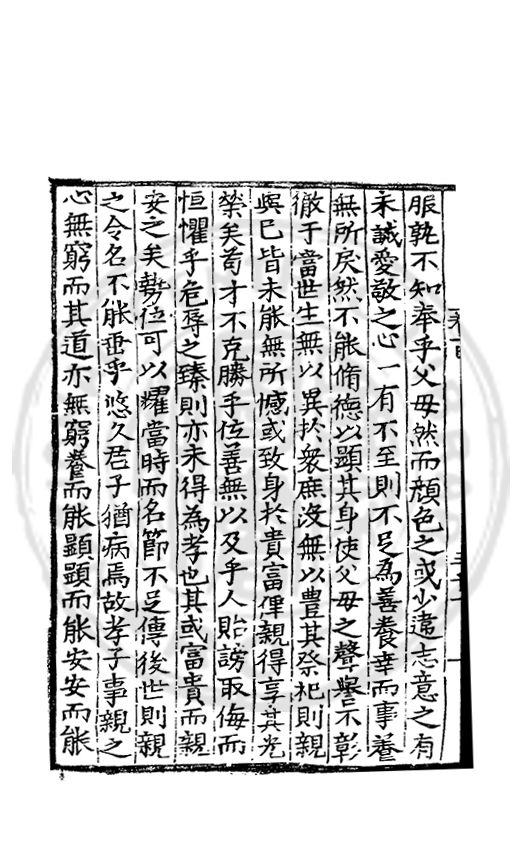 服孰不知奉乎父母然而顏色之或少違志意之有
未誠愛敬之心一有不至則不足為善養幸而事養
無所戾然不能脩德以顯其身使父母之聲譽不彰
徹于當世生無以異扵衆庶沒無以豊其祭祀則親
與已皆未能無所憾或致身扵貴富俾親得享其光
榮矣苟才不克勝乎位善無以及乎人貽謗取侮而
恒懼乎危辱之臻則亦未得為孝也其或富貴而親
安之矣勢位可以耀當時而名節不足傳後世則親
之令名不能垂乎悠久君子猶病焉故孝子事親之
心無窮而其道亦無窮養而能顯顯而能安安而能